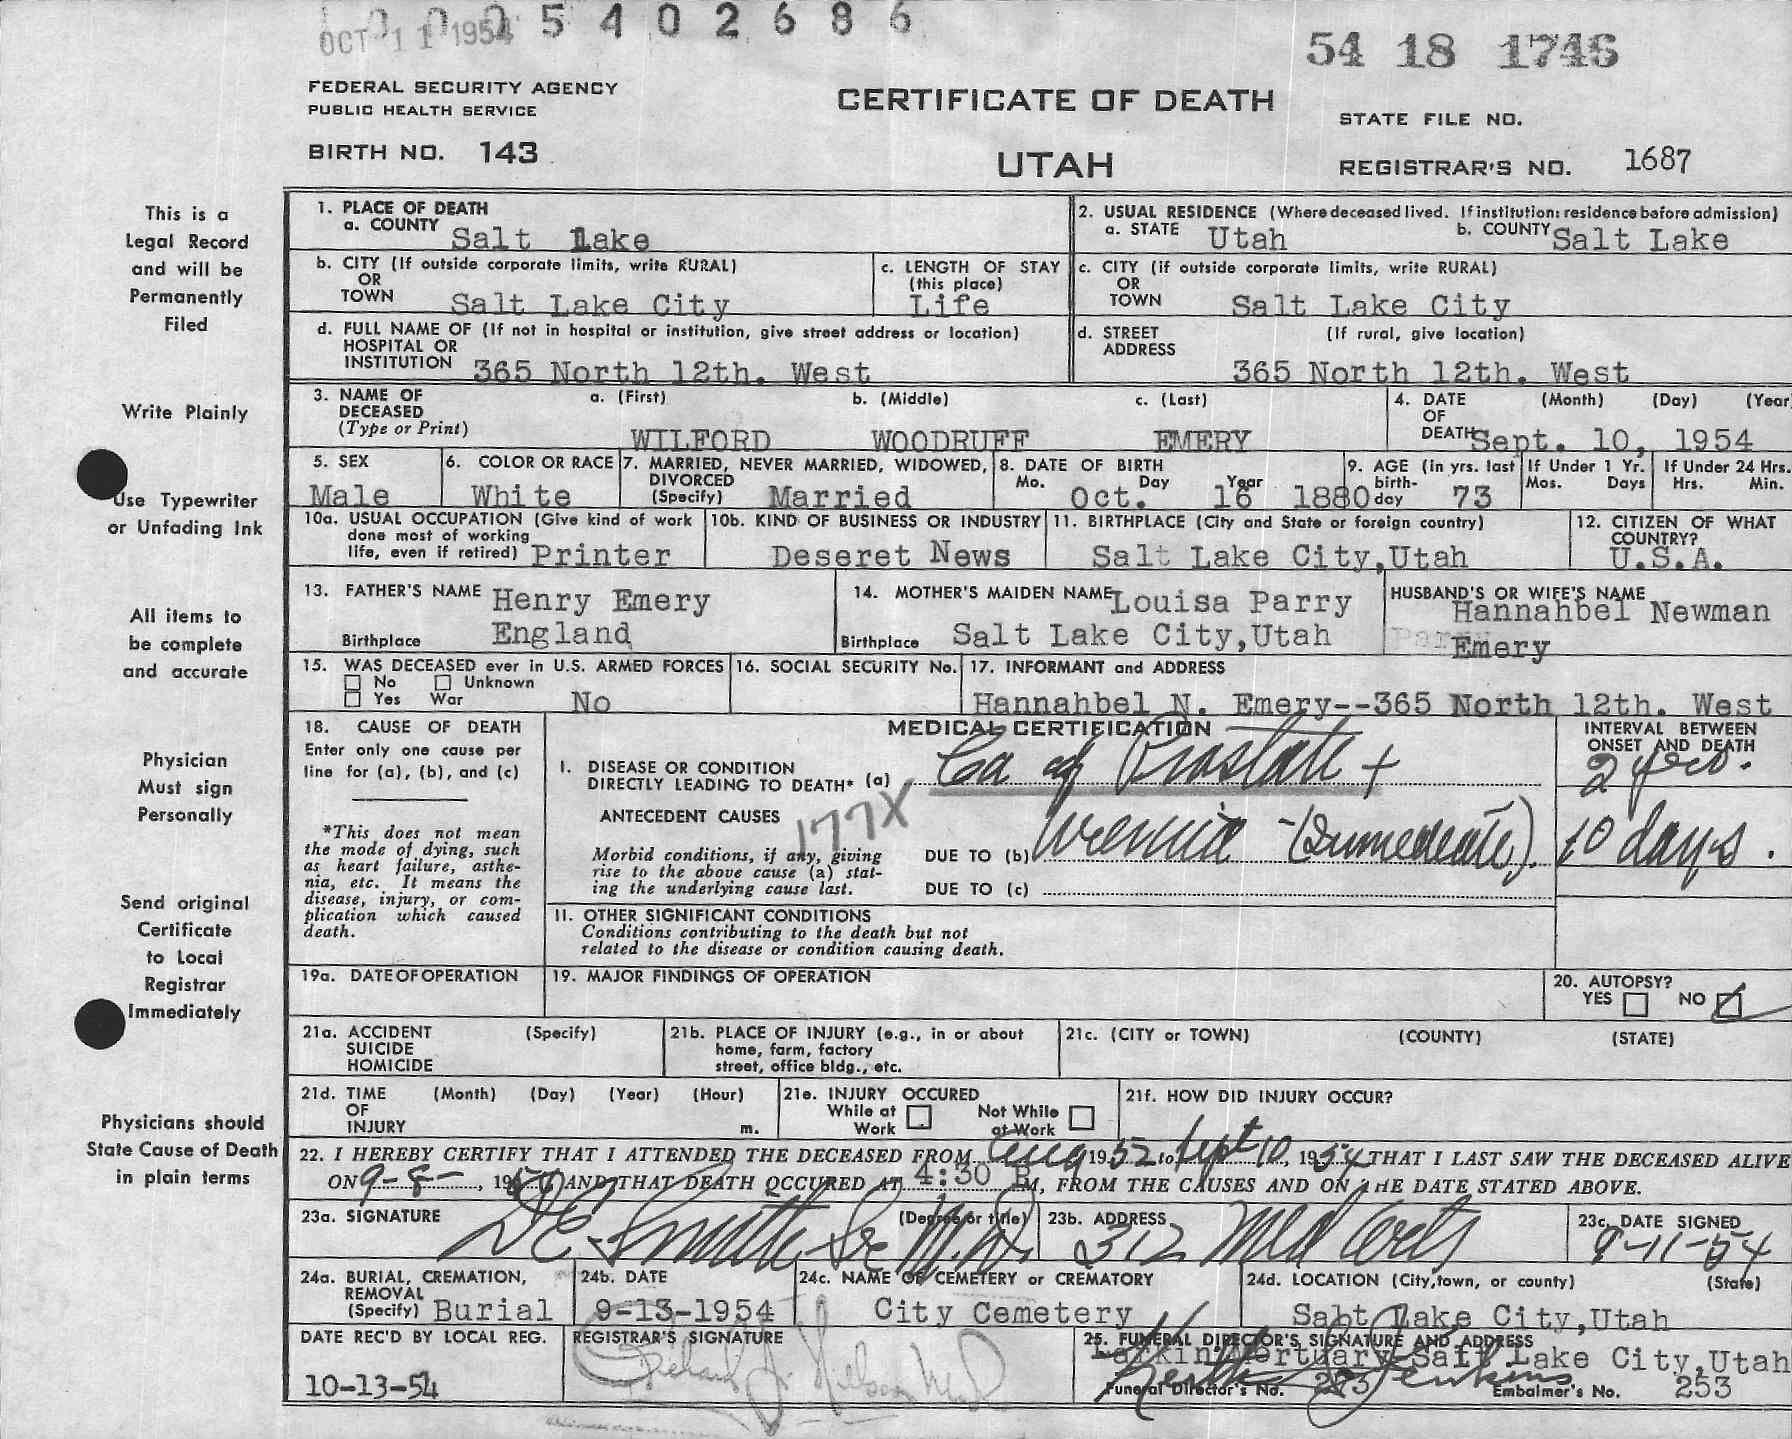 OCT 11 1954 5 4 0 2 6 8 6
54 18 1746
FEDERAL SECURITY AGENCY
PUBLIC HEALTH SERVICE
CERTIFICATE OF DEATH
STATE FILE NO.
BIRTH NO. 143
UTAH
REGISTRAR'S NO. 1687
This is a
Legal Record
and will be
Permanently
Filed
Write Plainly
Use Typewriter
or Unfading Ink
All items to
be complete
and accurate
Physician
Must sign
Personally
Send original
Certificate
to Local
Registrar
Immediately
Physicians should
State Cause of Death
in plain terms
1. PLACE OF DEATH
a. COUNTY Salt Lake
2. USUAL RESIDENCE (Where deceased lived. If institution: residence before admission)
a. STATE Utah b. COUNTY Salt Lake
b. CITY (If outside corporate limits, write RURAL)
OR
TOWN Salt Lake City
c. LENGTH OF STAY
(this place)
Life
c. CITY (if outside corporate limits, write RURAL)
OR
TOWN Salt Lake City
d. FULL NAME OF (If not in hospital or institution, give street address or location)
HOSPITAL OR
INSTITUTION 365 North 12th. West
d. STREET (If rural, give location)
ADDRESS
365 North 12th. West
3. NAME OF a. (First) b. (Middle) c. (Last)
DECEASED
(Type or Print)
WILFORD WOODRUFF EMERY
4. DATE (Month) (Day) (Year
OF
DEATH Sept. 10, 1954
5. SEX
Male
6. COLOR OR RACE
White
7. MARRIED, NEVER MARRIED, WIDOWED,
DIVORCED
(Specify) Married
8. DATE OF BIRTH
Mo. Day Year
Oct. 16 1880
9. AGE (in yrs. last
birth-
day 73
If Under 1 Yr.
Mos. Days
If Under 24 Hrs.
Hrs. Min.
10a. USUAL OCCUPATION (Give kind of work
done most of working
life, even if retired) Printer
10b. KIND OF BUSINESS OR INDUSTRY
Deseret News
11. BIRTHPLACE (City and State or foreign country)
Salt Lake City,Utah
12. CITIZEN OF WHAT
COUNTRY?
U.S.A.
13. FATHER'S NAME Henry Emery
Birthplace England
14. MOTHER'S MAIDEN NAME Louisa Parry
Birthplace Salt Lake City,Utah
HUSBAND'S OR WIFE'S NAME
Hannahbel Newman
Emery
15. WAS DECEASED ever in U.S. ARMED FORCES
No Unknown
Yes War No
16. SOCIAL SECURITY No.
17. INFORMANT and ADDRESS
Hannahbel N. Emery--365 North 12th. West
18. CAUSE OF DEATH
Enter only one cause per
line for (a), (b), and (c)
*This does not mean
the mode of dying, such
as heart failure, asthe-
nia, etc. It means the
disease, injury, or com-
plication which caused
death.
MEDICAL CERTIFICATION
I. DISEASE OR CONDITION
DIRECTLY LEADING TO DEATH* (a) Ca of Prostate +
ANTECEDENT CAUSES 177X
Morbid conditions, if any, giving
rise to the above cause (a) stat-
ing the underlying cause last.
DUE TO (b) Uremia - (Immediate).
DUE TO (c)
INTERVAL BETWEEN
ONSET AND DEATH
2 yrs.
10 days.
II. OTHER SIGNIFICANT CONDITIONS
Conditions contributing to the death but not
related to the disease or condition causing death.
19a. DATE OF OPERATION
19. MAJOR FINDINGS OF OPERATION
20. AUTOPSY?
YES NO
21a. ACCIDENT (Specify)
SUICIDE
HOMICIDE
21b. PLACE OF INJURY (e.g., in or about
home, farm, factory
street, office bldg., etc.
21c. (CITY or TOWN) (COUNTY) (STATE)
21d. TIME (Month) (Day) (Year) (Hour)
OF
INJURY m.
21e. INJURY OCCURED
While at Work
Not While at Work
21f. HOW DID INJURY OCCUR?
22. I HEREBY CERTIFY THAT I ATTENDED THE DECEASED FROM Aug 1952 to Sept 10, 1954 THAT I LAST SAW THE DECEASED ALIVE
ON 9-8-, 1954 AND THAT DEATH OCCURED AT 4:30 P M, FROM THE CAUSES AND ON THE DATE STATED ABOVE.
23a. SIGNATURE (Degree or title)
D C Smith Sr M.D.
23b. ADDRESS
312 Med Arts
23c. DATE SIGNED
9-11-54
24a. BURIAL, CREMATION,
REMOVAL
(Specify) Burial
24b. DATE
9-13-1954
24c. NAME OF CEMETERY or CREMATORY
City Cemetery
24d. LOCATION (City, town, or county) (State)
Salt Lake City,Utah
DATE REC'D BY LOCAL REG.
10-13-54
REGISTRAR'S SIGNATURE
25. FUNERAL DIRECTOR'S SIGNATURE AND ADDRESS
Larkin Mortuary Salt Lake City,Utah
Jenkins
Funeral Director's No. Embalmer's No. 253